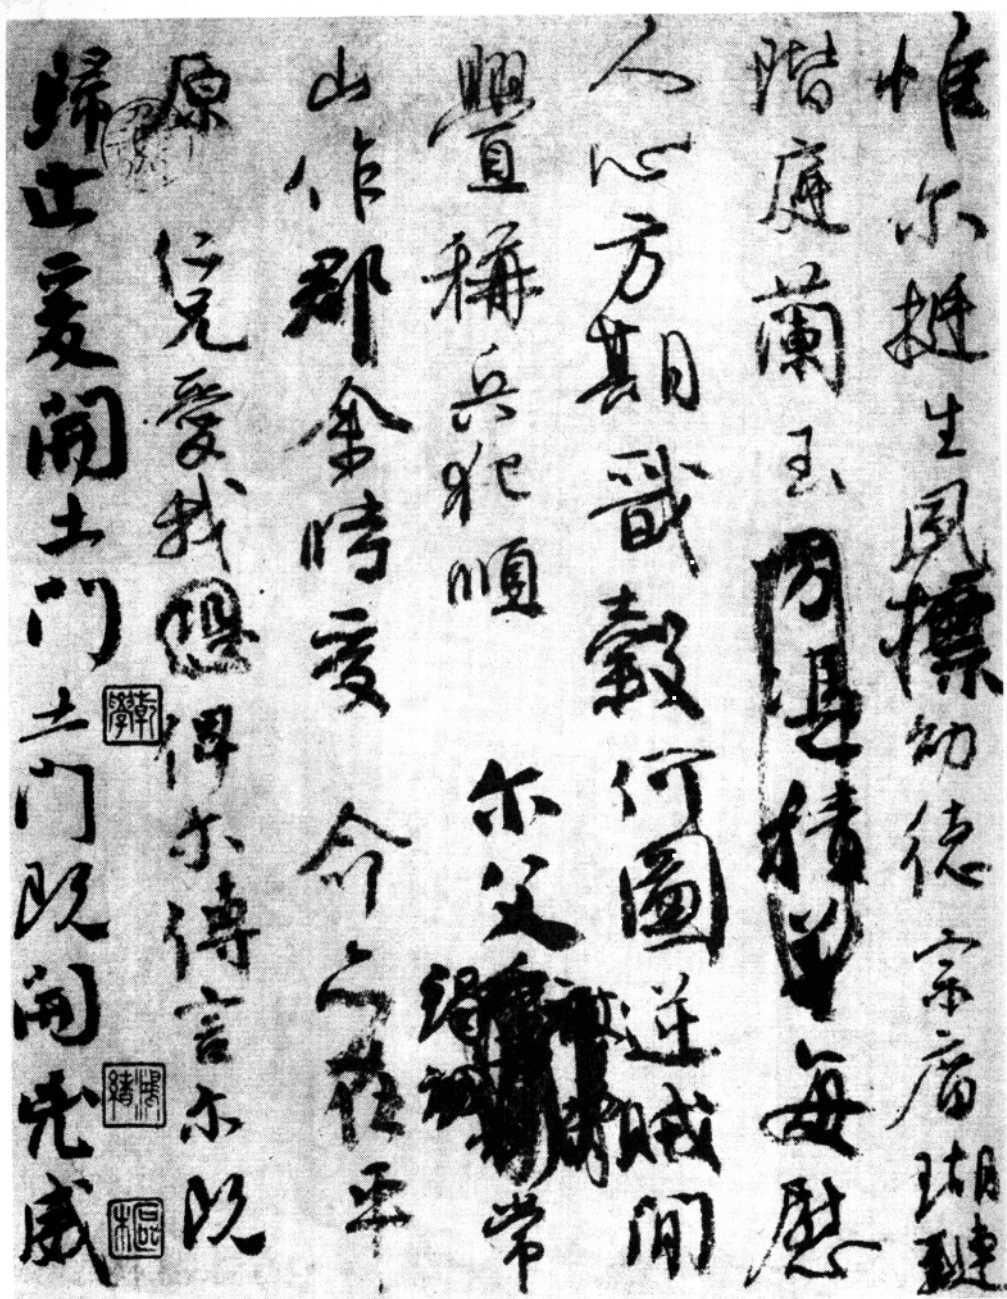 惟尔挺生夙標幼德宗廟瑚璉
階庭蘭玉方憑積善每慰
人心方期戩穀何圖逆賊閒
釁稱兵犯順尔父常
山作郡余時受命亦在平
原仁兄愛我俾尔傳言尔既
歸止爰開土門土門既開凶威